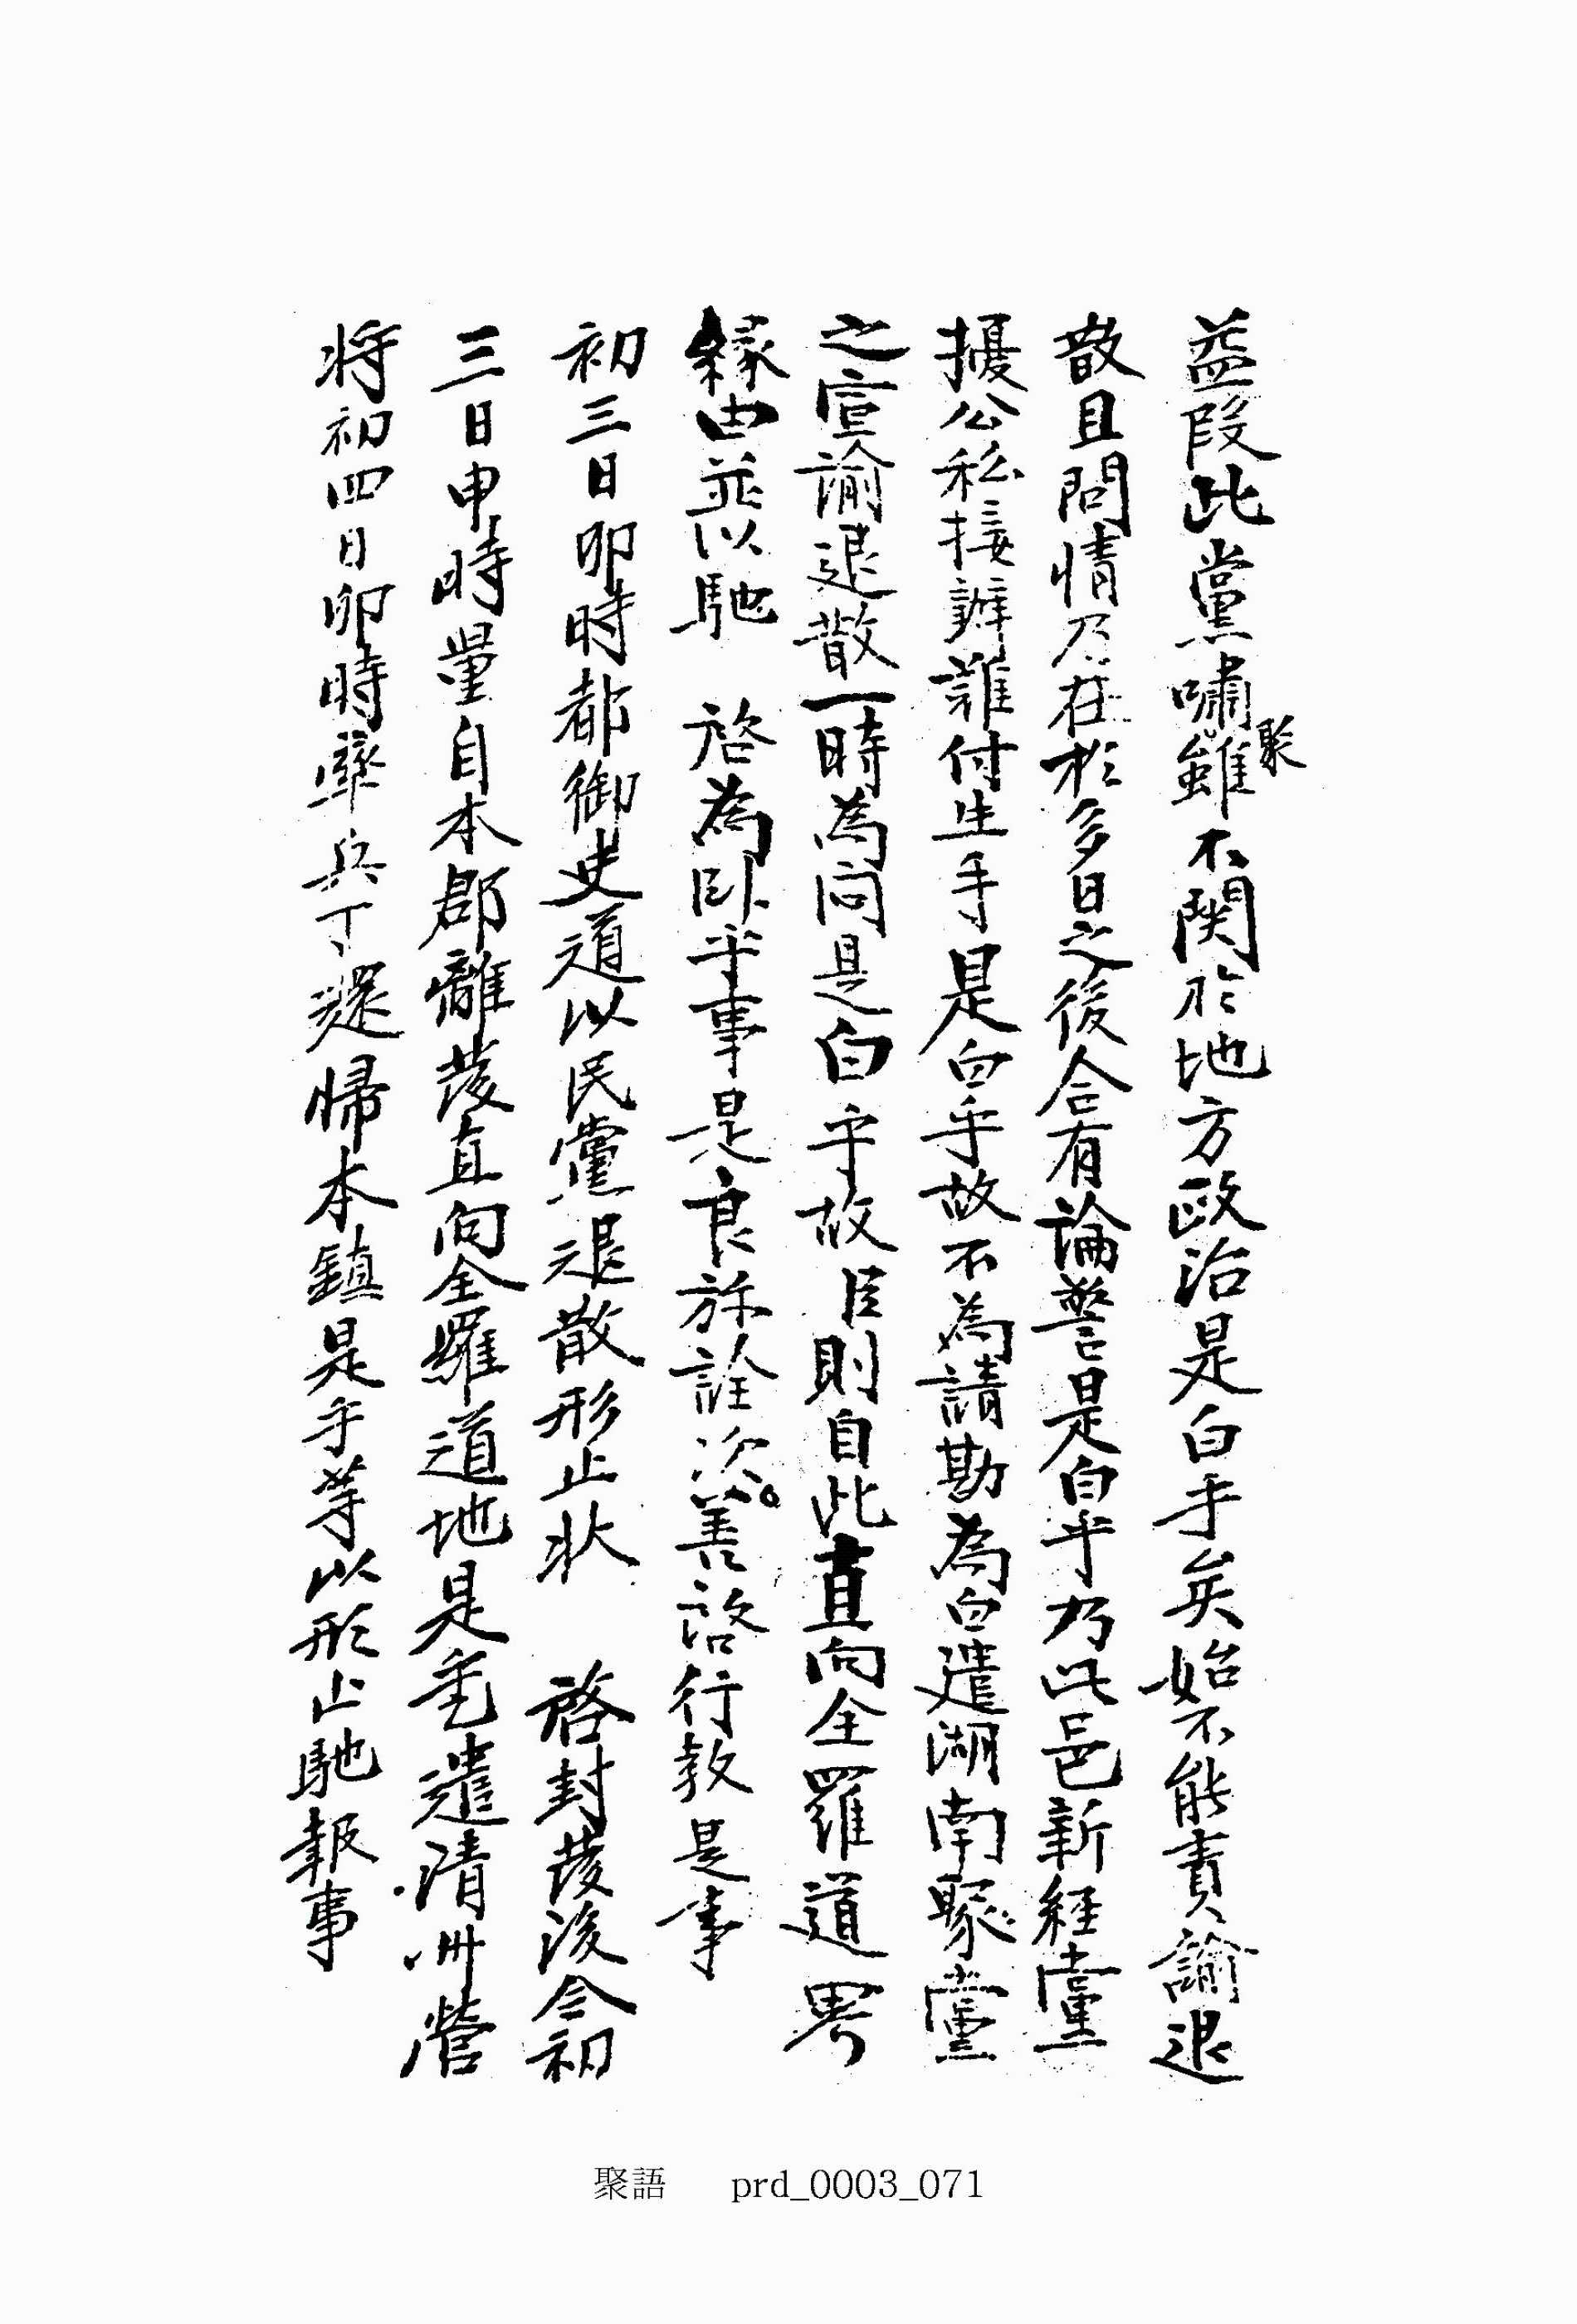 益段此黨嘯聚雖不関於地方政治是白乎矣始不能責諭退
散且問情乃在於多日之後合有論警是白乎乃此邑新経黨
擾公私接濟難付生手是白乎故不為請勘為白遣湖南聚黨
之宣諭退散一時為問是白乎故臣則自此直向全羅道畧
緣由並以馳 啓為臥乎事是良旀詮次善啓行教是事
初三日卯時都御史道以民黨退散形止狀 啓封發後今初
三日申時量自本郡離發直向全羅道地是乎遣清州營
將初四日卯時率兵丁還歸本鎮是乎等以形止馳報事
聚語 prd_0003_071